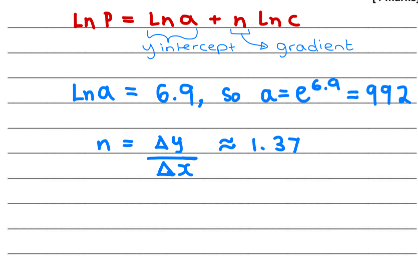 Ln P = Ln a + n Ln C
y intercept → gradient
Ln a = 6.9, so a = e^6.9 = 992
n = Δy/Δx ≈ 1.37